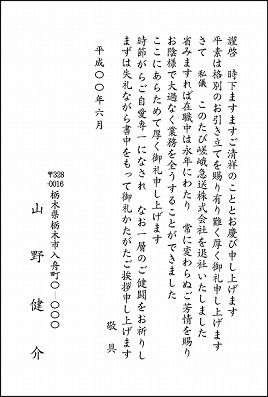 謹啓　時下ますますご清祥のこととお慶び申し上げます
平素は格別のお引き立てを賜り有り難く厚く御礼申し上げます
さて　私儀　このたび嵯峨急送株式会社を退社いたしました
省みますれば在職中は永年にわたり　常に変わらぬご芳情を賜り
お陰様で大過なく業務を全うすることができました
ここにあらためて厚く御礼申し上げます
時節がらご自愛専一になされ　なお一層のご健闘をお祈りし
まずは失礼ながら書中をもって御礼かたがたご挨拶申し上げます
敬具
平成〇〇年六月
〒328-0016
栃木県栃木市入舟町〇―〇〇〇
山野健介